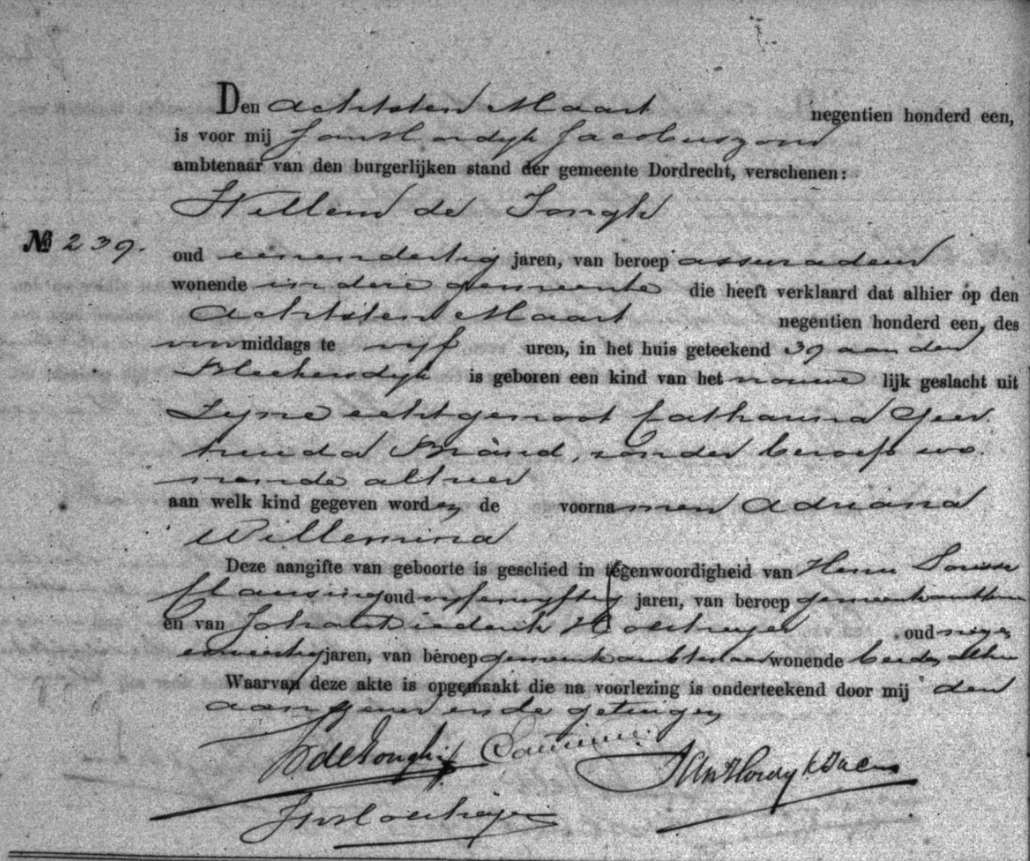 Den achtsten Maart negentien honderd een,
is voor mij Jan Hordijk Jacobuszoon
ambtenaar van den burgerlijken stand der gemeente Dordrecht, verschenen:
Willem de Jongh
№ 239.
oud eenendertig jaren, van beroep assuradeur
wonende in deze gemeente die heeft verklaard dat alhier op den
achtsten Maart negentien honderd een, des
voormiddags te vijf uren, in het huis geteekend 39 aan den
Bleekersdijk is geboren een kind van het vrouwe lijk geslacht uit
Zijne echtgenoot Catharina Geer
truida Brand, zonder beroep wo
nende alhier
aan welk kind gegeven worden de voornamen Adriana
Willemina
Deze aangifte van geboorte is geschied in tegenwoordigheid van
oud vijfenvijftig jaren, van beroep gemeenteambtenaar
en van Johan Diederik oud negen
enveertig jaren, van beroep gemeenteambtenaar wonende beiden alhier
Waarvan deze akte is opgemaakt die na voorlezing is onderteekend door mij den
aangever en de getuigen
W de Jongh Jan Hordijk Jaczn